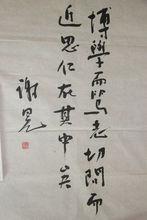 博學而篤志切問而
近思仁在其中矣
謝冕